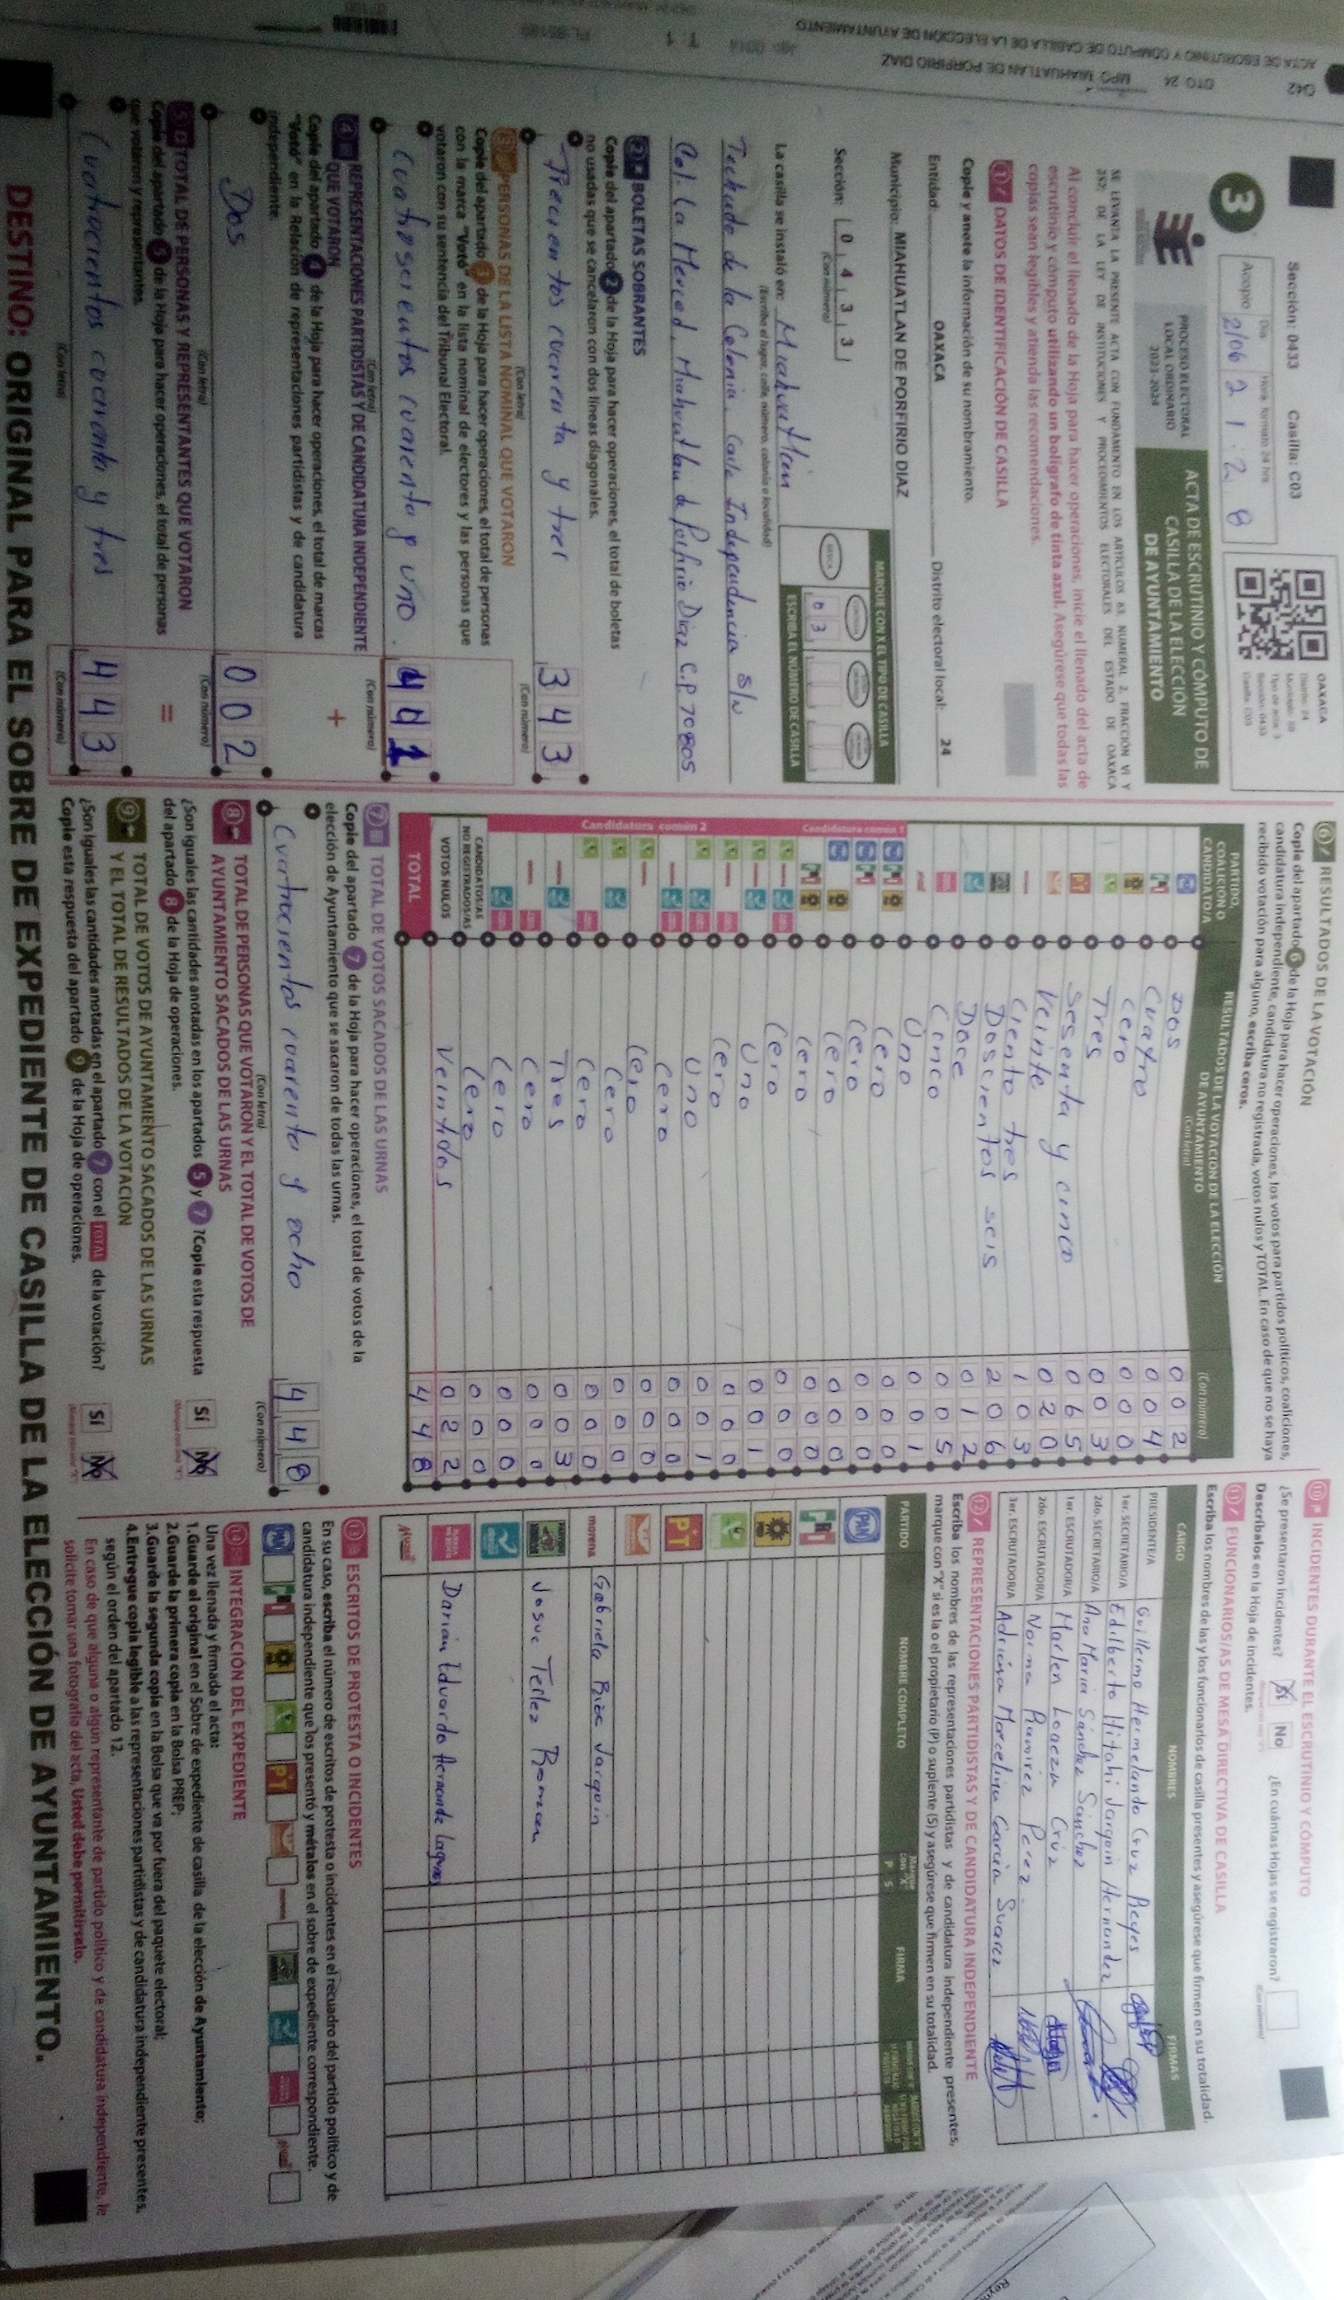 ACTA DE ESCRUTINIO Y CÓMPUTO DE CASILLA DE LA ELECCIÓN DE AYUNTAMIENTO
042 DTO 24 MPO MIAHUATLAN DE PORFIRIO DIAZ
Sección: 0433 Casilla: C03
Día Hora formato 24 hrs
Acopio 2/06 21:28
OAXACA
3
PROCESO ELECTORAL
LOCAL ORDINARIO
2023-2024
ACTA DE ESCRUTINIO Y CÓMPUTO DE
CASILLA DE LA ELECCIÓN
DE AYUNTAMIENTO
SE LEVANTA LA PRESENTE ACTA CON FUNDAMENTO EN LOS ARTÍCULOS 83, NUMERAL 2, FRACCIÓN VI Y
252; DE LA LEY DE INSTITUCIONES Y PROCEDIMIENTOS ELECTORALES DEL ESTADO DE OAXACA
Al concluir el llenado de la Hoja para hacer operaciones, inicie el llenado del acta de
escrutinio y cómputo utilizando un bolígrafo de tinta azul. Asegúrese que todas las
copias sean legibles y atienda las recomendaciones.
1 DATOS DE IDENTIFICACIÓN DE CASILLA
Copie y anote la información de su nombramiento.
Entidad: OAXACA Distrito electoral local: 24
Municipio: MIAHUATLAN DE PORFIRIO DIAZ
Sección: 0433
(Con número)
MARQUE CON X EL TIPO DE CASILLA
BÁSICA
03
ESCRIBA EL NÚMERO DE CASILLA
La casilla se instaló en: Miahuatlan
(Escriba el lugar, calle, número, colonia o localidad)
Techado de la Colonia, Calle Independencia S/N
Col. La Merced, Miahuatlan de Porfirio Diaz C.P 70805
2 BOLETAS SOBRANTES
Copie del apartado 2 de la Hoja para hacer operaciones, el total de boletas
no usadas que se cancelaron con dos líneas diagonales.
Trecientos cuarenta y tres 343
(Con letra) (Con número)
3 PERSONAS DE LA LISTA NOMINAL QUE VOTARON
Copie del apartado 3 de la Hoja para hacer operaciones, el total de personas
con la marca "Votó" en la lista nominal de electores y las personas que
votaron con su sentencia del Tribunal Electoral.
Cuatrocientos cuarenta y uno. 441
(Con letra) (Con número)
4 REPRESENTACIONES PARTIDISTAS Y DE CANDIDATURA INDEPENDIENTE
QUE VOTARON
Copie del apartado 4 de la Hoja para hacer operaciones, el total de marcas
"Votó" en la Relación de representaciones partidistas y de candidatura
independiente.
+
Dos 002
(Con letra) (Con número)
5 TOTAL DE PERSONAS Y REPRESENTANTES QUE VOTARON
Copie del apartado 5 de la Hoja para hacer operaciones, el total de personas
que votaron y representantes.
=
Cuatrocientos cuarenta y tres 443
(Con letra) (Con número)
6 RESULTADOS DE LA VOTACIÓN
Copie del apartado 6 de la Hoja para hacer operaciones, los votos para partidos políticos, coaliciones,
candidatura independiente, candidatura no registrada, votos nulos y TOTAL. En caso de que no se haya
recibido votación para alguno, escriba ceros.
PARTIDO,
COALICIÓN O
CANDIDATO/A
RESULTADOS DE LA VOTACIÓN DE LA ELECCIÓN
DE AYUNTAMIENTO
(Con letra) (Con número)
Dos 002
Cuatro 004
Cero 000
Tres 003
Sesenta y cinco 065
Veinte 020
Ciento tres 103
Doscientos seis 206
Doce 012
Cinco 005
Uno 001
Candidatura común 1
Cero 000
Cero 000
Cero 000
Cero 000
Candidatura común 2
Cero 000
Uno 001
Cero 000
Uno 001
Cero 000
Cero 000
Cero 000
Cero 000
Tres 003
Cero 000
Cero 000
CANDIDATOS/AS
NO REGISTRADOS/AS Cero 000
VOTOS NULOS Veintidos 022
TOTAL 448
7 TOTAL DE VOTOS SACADOS DE LAS URNAS
Copie del apartado 7 de la Hoja para hacer operaciones, el total de votos de la
elección de Ayuntamiento que se sacaron de todas las urnas.
Cuatrocientos cuarenta y ocho 448
(Con letra) (Con número)
8 TOTAL DE PERSONAS QUE VOTARON Y EL TOTAL DE VOTOS DE
AYUNTAMIENTO SACADOS DE LAS URNAS
¿Son iguales las cantidades anotadas en los apartados 5 y 7 ? Copie esta respuesta
del apartado 8 de la Hoja de operaciones.
Sí No
9 TOTAL DE VOTOS DE AYUNTAMIENTO SACADOS DE LAS URNAS
Y EL TOTAL DE RESULTADOS DE LA VOTACIÓN
¿Son iguales las cantidades anotadas en el apartado 7 con el TOTAL de la votación?
Copie esta respuesta del apartado 9 de la Hoja de operaciones.
Sí No
10 INCIDENTES DURANTE EL ESCRUTINIO Y CÓMPUTO
¿Se presentaron incidentes? Sí No ¿En cuántas Hojas se registraron?
Descríbalos en la Hoja de incidentes.
11 FUNCIONARIOS/AS DE MESA DIRECTIVA DE CASILLA
Escriba los nombres de las y los funcionarios de casilla presentes y asegúrese que firmen en su totalidad.
CARGO NOMBRES FIRMAS
PRESIDENTE/A Guillermo Hermelando Cruz Reyes
1er. SECRETARIO/A Edilberto Hitahi Jarquin Hernandez
2do. SECRETARIO/A Ana Maria Sánchez Sánchez
1er. ESCRUTADOR/A Marlen Loaeza Cruz
2do. ESCRUTADOR/A Norma Ramirez Perez
3er. ESCRUTADOR/A Adriana Marcelina Garcia Suarez
12 REPRESENTACIONES PARTIDISTAS Y DE CANDIDATURA INDEPENDIENTE
Escriba los nombres de las representaciones partidistas y de candidatura independiente presentes,
marque con "X" si es la o el propietario (P) o suplente (S) y asegúrese que firmen en su totalidad.
PARTIDO NOMBRE COMPLETO P S FIRMA
PAN
PRI
PT
morena Gabriela Jarquin
Josue Tellez Roman
Darian Eduardo
13 ESCRITOS DE PROTESTA O INCIDENTES
En su caso, escriba el número de escritos de protesta o incidentes en el recuadro del partido político y de
candidatura independiente que los presentó y métalos en el sobre de expediente correspondiente.
14 INTEGRACIÓN DEL EXPEDIENTE
Una vez llenada y firmada el acta:
1.Guarde el original en el Sobre de expediente de casilla de la elección de Ayuntamiento;
2.Guarde la primera copia en la Bolsa PREP;
3.Guarde la segunda copia en la Bolsa que va por fuera del paquete electoral;
4.Entregue copia legible a las representaciones partidistas y de candidatura independiente presentes,
según el orden del apartado 12.
En caso de que alguna o algún representante de partido político y de candidatura independiente, le
solicite tomar una fotografía del acta, Usted debe permitírselo.
DESTINO: ORIGINAL PARA EL SOBRE DE EXPEDIENTE DE CASILLA DE LA ELECCIÓN DE AYUNTAMIENTO.